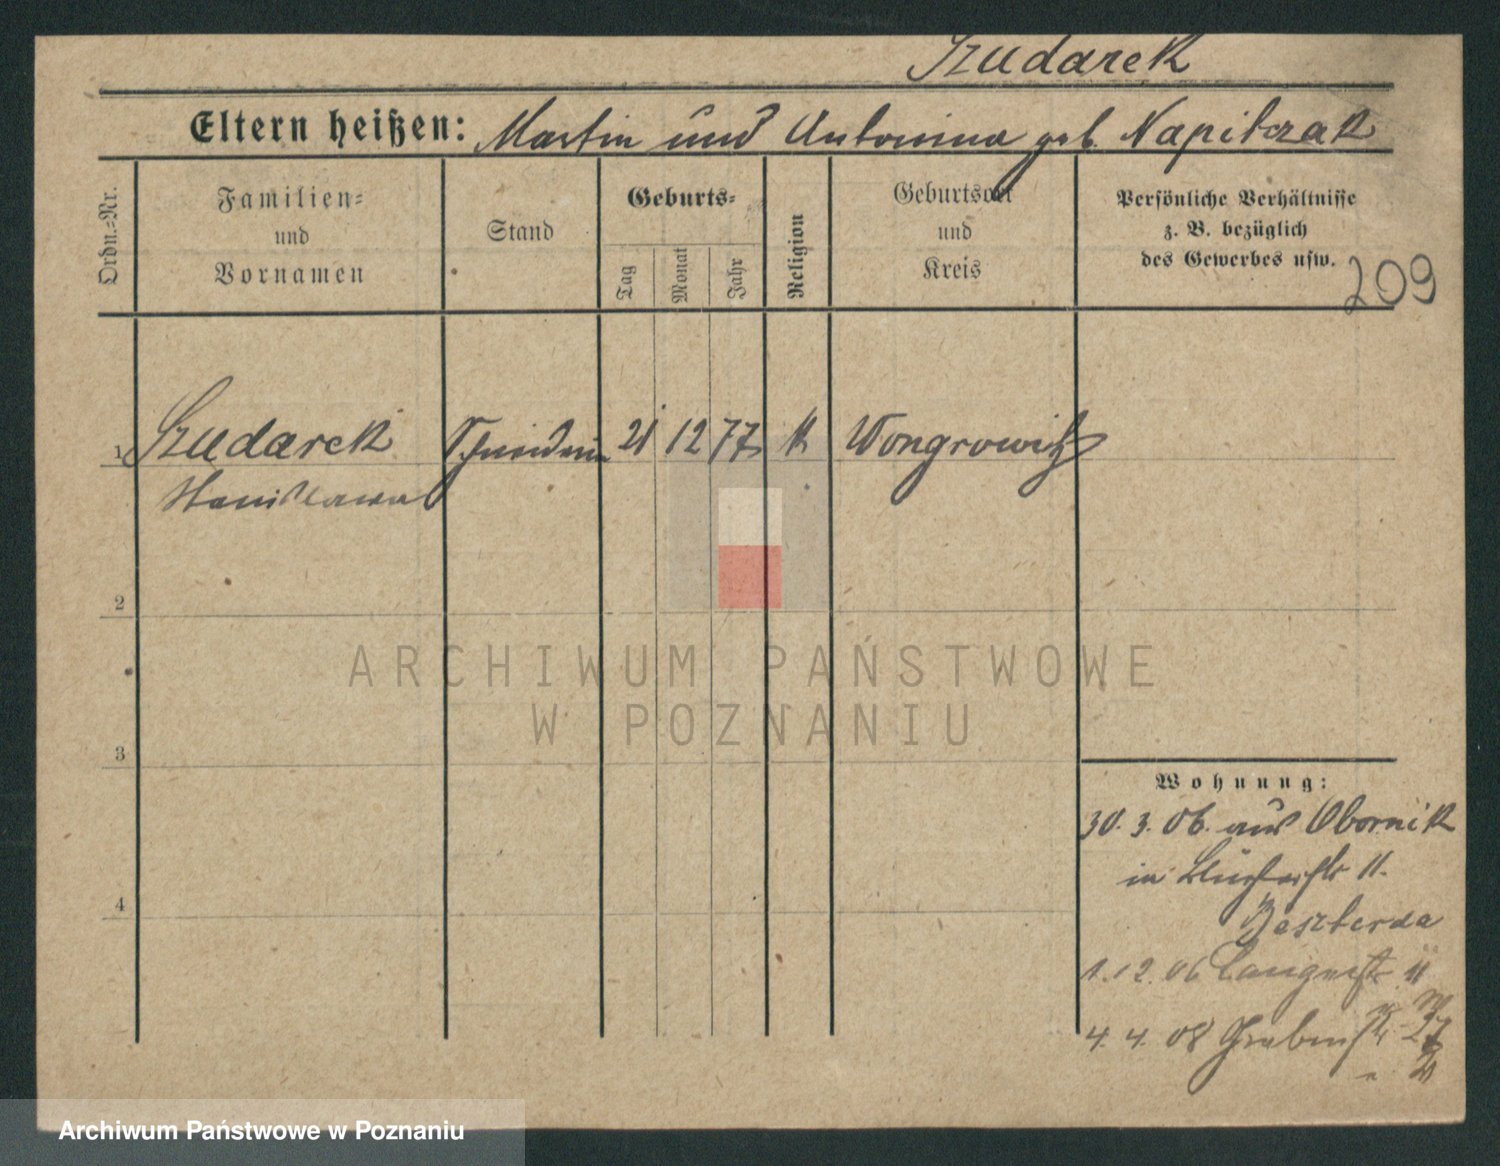 Szudarek
Eltern heißen: Martin und Antonina geb. Napitzak
Ordn.-Nr.
Familien-
und
Vornamen
Stand
Geburts-
Tag
Monat
Jahr
Religion
Geburtsort
und
Kreis
Persönliche Verhältnisse
z. B. bezüglich
des Gewerbes usw.
209
1 Szudarek 21 12 77 k Wongrowitz
Stanislawa
2
3
4
Wohnung:
30. 3. 06. aus Obornik
in 11.
1. 12. 06 11
4. 4. 08 Grabenstr 27
ARCHIWUM PAŃSTWOWE
W POZNANIU
Archiwum Państwowe w Poznaniu